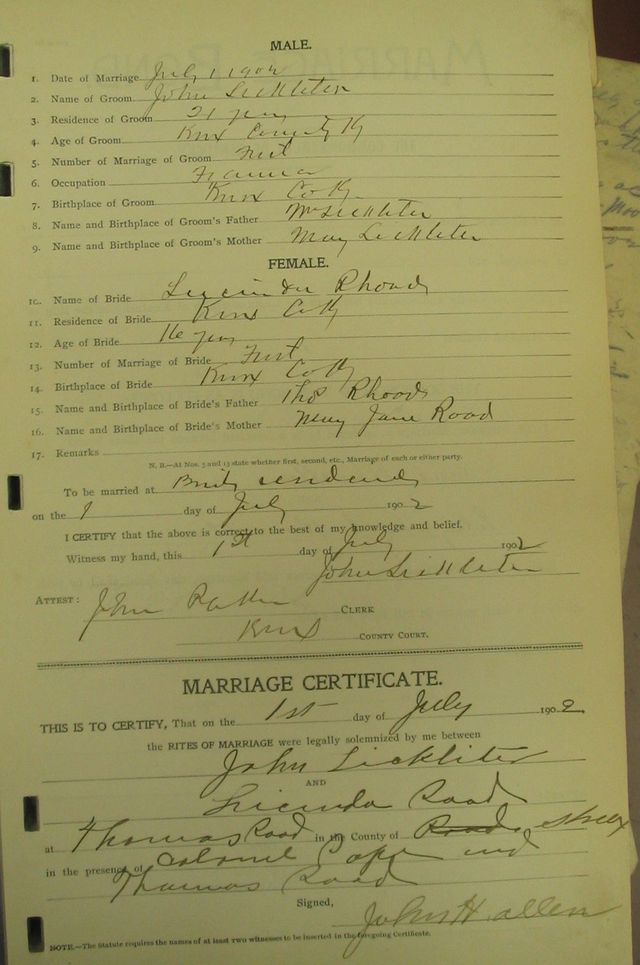 MALE.
1. Date of Marriage July 1 1902
2. Name of Groom John Lickliter
3. Residence of Groom 21 years
4. Age of Groom Knox County Ky
5. Number of Marriage of Groom First
6. Occupation Farmer
7. Birthplace of Groom Knox Co Ky
8. Name and Birthplace of Groom's Father Wm Lickliter
9. Name and Birthplace of Groom's Mother Mary Lickliter
FEMALE.
10. Name of Bride Lucinda Rhoads
11. Residence of Bride Knox Co Ky
12. Age of Bride 16 years
13. Number of Marriage of Bride First
14. Birthplace of Bride Knox Co Ky
15. Name and Birthplace of Bride's Father Thos Rhoads
16. Name and Birthplace of Bride's Mother Mary Jane Road
17. Remarks
N. B.—At Nos. 5 and 13 state whether first, second, etc., Marriage of each or either party.
To be married at Brids residence
on the 1 day of July 1902
I CERTIFY that the above is correct to the best of my knowledge and belief.
Witness my hand, this 1st day of July 1902
John Lickliter
ATTEST: John Parker CLERK
Knox COUNTY COURT.
MARRIAGE CERTIFICATE.
THIS IS TO CERTIFY, That on the 1st day of July 1902,
the RITES OF MARRIAGE were legally solemnized by me between
John Lickliter
AND
Lucinda Road
at Thomas Road in the County of Knox
in the presence of Colonel Cope and
Thomas Road
Signed,
John H Allen
NOTE.—The Statute requires the names of at least two witnesses to be inserted in the foregoing Certificate.